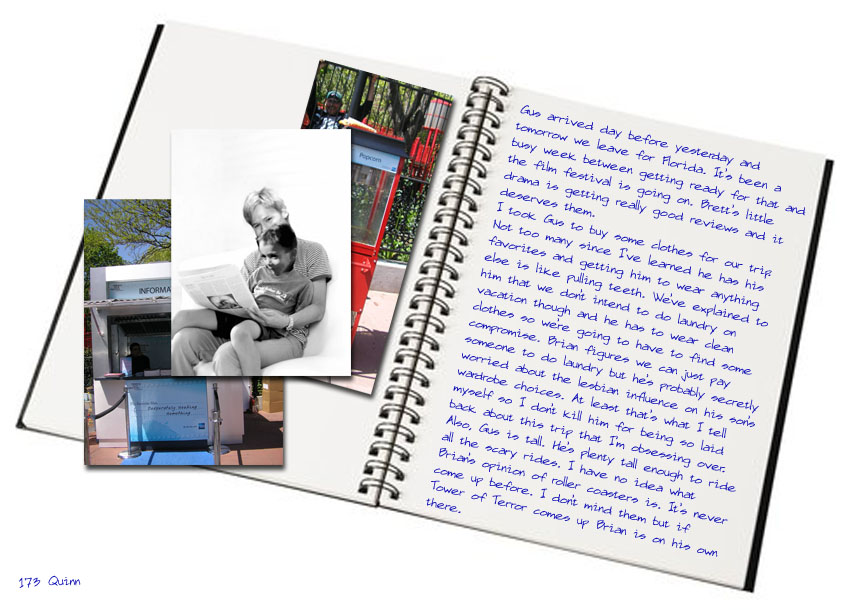 Gus arrived day before yesterday and
tomorrow we leave for Florida. It's been a
busy week between getting ready for that and
the film festival is going on. Brett's little
drama is getting really good reviews and it
deserves them.
I took Gus to buy some clothes for our trip.
Not too many since I've learned he has his
favorites and getting him to wear anything
else is like pulling teeth. We've explained to
him that we don't intend to do laundry on
vacation though and he has to wear clean
clothes so we're going to have to find some
compromise. Brian figures we can just pay
someone to do laundry but he's probably secretly
worried about the lesbian influence on his son's
wardrobe choices. At least that's what I tell
myself so I don't kill him for being so laid
back about this trip that I'm obsessing over.
Also, Gus is tall. He's plenty tall enough to ride
all the scary rides. I have no idea what
Brian's opinion of roller coasters is. It's never
come up before. I don't mind them but if
Tower of Terror comes up Brian is on his own
there.
Popcorn
INFORMA
Desperately Seeking
Something
173 Quinn